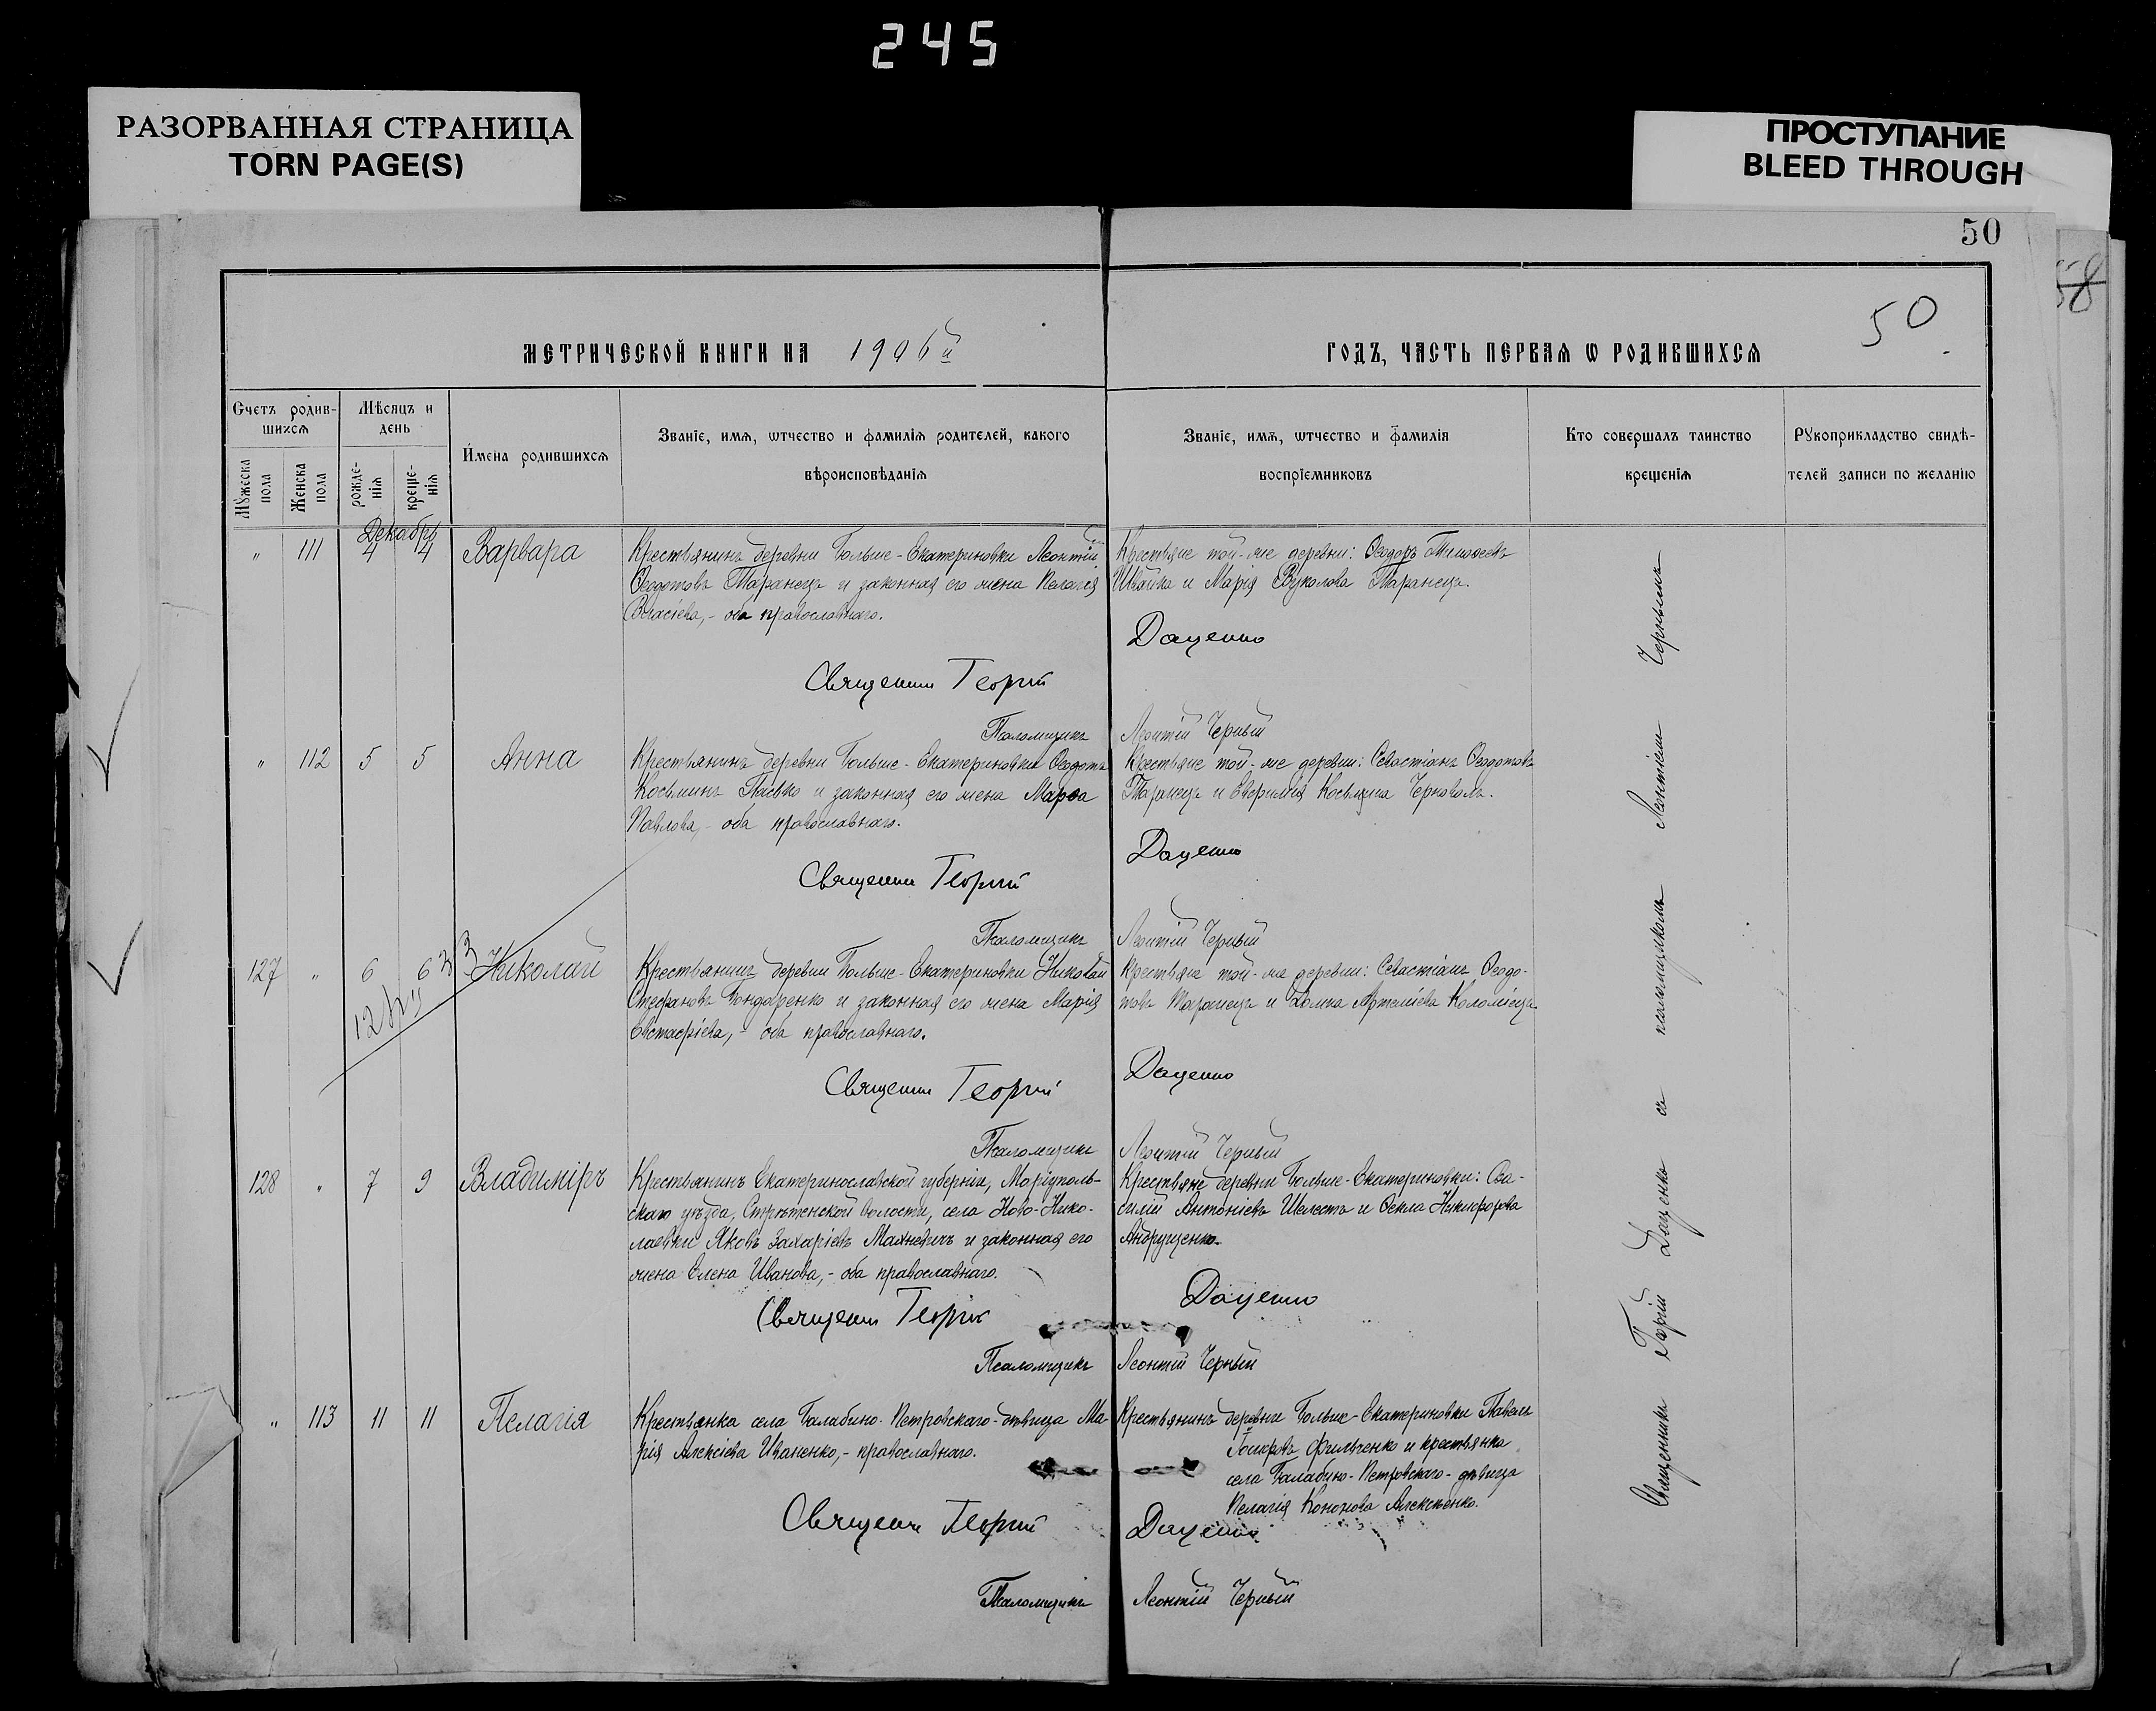 245
РАЗОРВАННАЯ СТРАНИЦА
TORN PAGE(S)
ПРОСТУПАНИЕ
BLEED THROUGH
50
58
50
МЕТРИЧЕСКОЙ КНИГИ НА 1906й
ГОДЪ, ЧАСТЬ ПЕРВАЯ Ѡ РОДИВШИХСЯ
Счетъ родив-
шихся
Мѣсяцъ и
день
Мужеска
пола
Женска
пола
рожде-
нія
креще-
нія
Имена родившихся
Званіе, имя, ѡтчество и фамилія родителей, какого
вѣроисповѣданія
Званіе, имя, ѡтчество и фамилія
воспріемниковъ
Кто совершалъ таинство
крещенія
Рукоприкладство свидѣ-
телей записи по желанію
Декабрь
" 111 4 4 Варвара
Крестьянинъ деревни Больше-Екатериновки Леонтій
Ѳеодотовъ Таранецъ и законная его жена Пелагея
Власіева, - оба православнаго.
Крестьяне той-же деревни: Ѳеодоръ Тимоѳеевъ
Швайка и Марія Вуколова Таранецъ.
Священникъ Георгій Даценко
Псаломщикъ Леонтій Черный
" 112 5 5 Анна
Крестьянинъ деревни Больше-Екатериновки Ѳеодотъ
Косьминъ Пасько и законная его жена Марѳа
Павлова, - оба православнаго.
Крестьяне той-же деревни: Севастіанъ Ѳеодотовъ
Таранецъ и Евфимія Косьмина Черноволъ.
Священникъ Георгій Даценко
Псаломщикъ Леонтій Черный
127 " 6 6 Николай
Крестьянинъ деревни Больше-Екатериновки Николай
Стефановъ Бондаренко и законная его жена Марія
Евстафіева, - оба православнаго.
Крестьяне той-же деревни: Севастіанъ Ѳеодо-
товъ Таранецъ и Домна Артеміева Коломіецъ
Священникъ Георгій Даценко
Псаломщикъ Леонтій Черный
128 " 7 9 Владиміръ
Крестьянинъ Екатеринославской губерніи, Маріуполь-
скаго уѣзда, Стрѣтенской волости, села Ново-Нико-
лаевки Яковъ Захаріевъ Махневичъ и законная его
жена Елена Иванова, - оба православнаго.
Крестьяне деревни Больше-Екатериновки: Ва-
силій Антоніевъ Шелестъ и Ѳекла Никифорова
Андрущенко.
Священникъ Георгій Даценко
Псаломщикъ Леонтій Черный
" 113 11 11 Пелагія
Крестьянка села Балабино-Петровскаго-дѣвица Ма-
рія Алексіева Иваненко, - православнаго.
Крестьянинъ деревни Больше-Екатериновки Павелъ
Фильченко и крестьянка
села Балабино-Петровскаго-дѣвица
Пелагія Кононова Алексѣенко.
Священникъ Георгій Даценко
Псаломщикъ Леонтій Черный
Священникъ Георгій Даценко съ псаломщикомъ Леонтіемъ Чернымъ